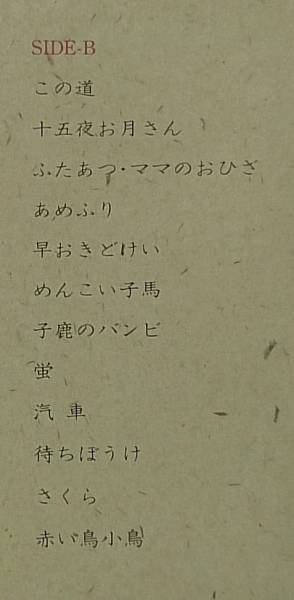 SIDE-B
この道
十五夜お月さん
ふたあつ・ママのおひざ
あめふり
早おきどけい
めんこい子馬
子鹿のバンビ
蛍
汽車
待ちぼうけ
さくら
赤い鳥小鳥